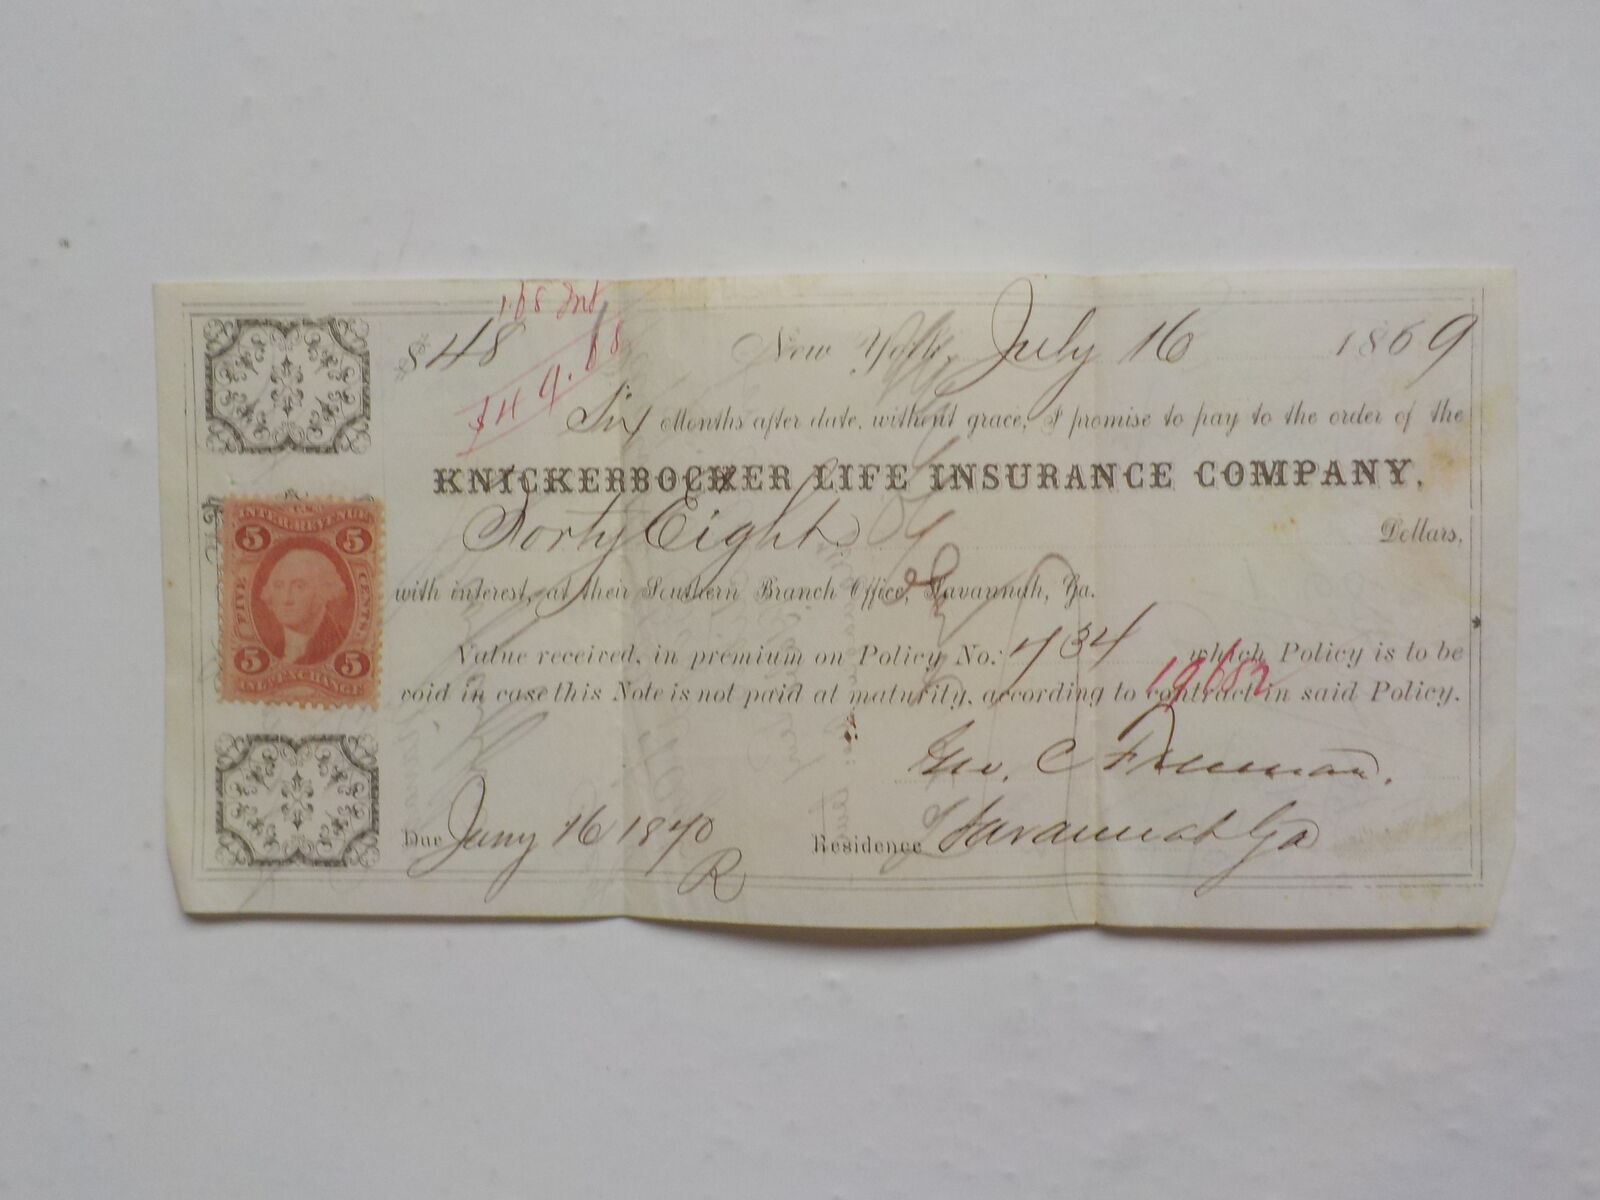 1.68 Int
$48 New York, July 16 1869
$49.68
Six Months after date, without grace, I promise to pay to the order of the
KNICKERBOCKER LIFE INSURANCE COMPANY,
Forty Eight Dollars,
with interest, at their Southern Branch Office, Savannah, Ga.
Value received, in premium on Policy No: 734 which Policy is to be
19682
void in case this Note is not paid at maturity, according to contract in said Policy.
Geo. C Freeman.
Due Jany 16 1870 Residence Savannah Ga
R
U.S.
INTER. REVENUE
5 5
FIVE CENTS.
5 5
INL. EXCHANGE